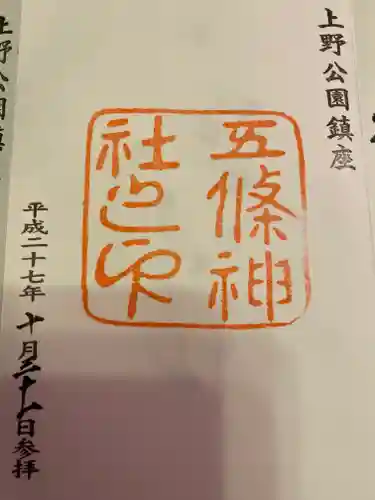 上野公園鎮座
五條神
社之印
平成二十七年 十月三十一日参拝
上野公園鎮